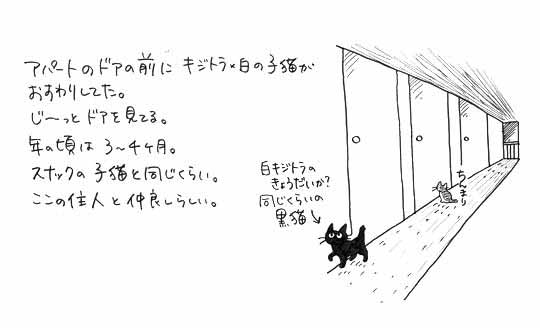 アパートのドアの前に キジトラ×白の子猫が
おすわりしてた。
じ〜っと ドアを見てる。
年の頃は 3〜4ヶ月。
スナックの子猫と同じくらい。
ここの住人と仲良しらしい。
白キジトラの
きょうだいか?
同じくらいの
黒猫↘
ちんまり